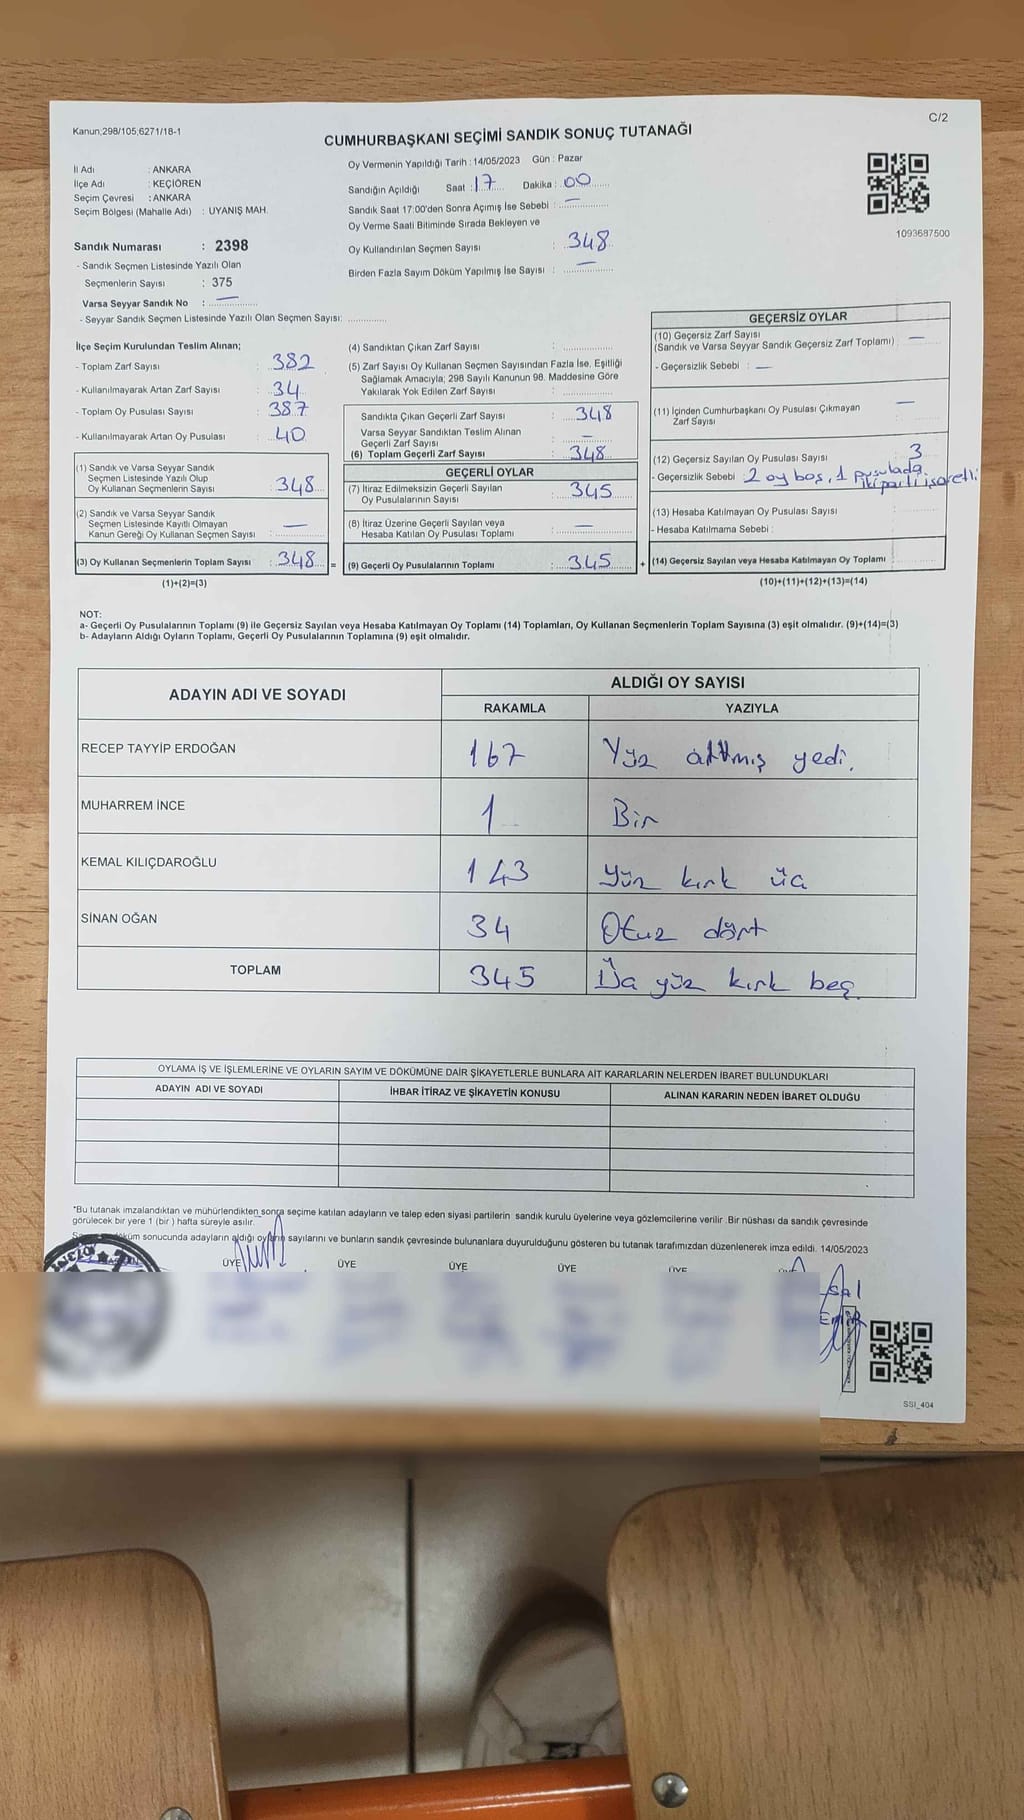 Kanun;298/105;6271/18-1
C/2
CUMHURBAŞKANI SEÇİMİ SANDIK SONUÇ TUTANAĞI
İl Adı : ANKARA
İlçe Adı : KEÇİÖREN
Seçim Çevresi : ANKARA
Seçim Bölgesi (Mahalle Adı) : UYANIŞ MAH.
Sandık Numarası : 2398
- Sandık Seçmen Listesinde Yazılı Olan
Seçmenlerin Sayısı : 375
Varsa Seyyar Sandık No : —
- Seyyar Sandık Seçmen Listesinde Yazılı Olan Seçmen Sayısı:
Oy Vermenin Yapıldığı Tarih : 14/05/2023 Gün : Pazar
Sandığın Açıldığı Saat : 17 Dakika : 00
Sandık Saat 17:00'den Sonra Açımış İse Sebebi : —
Oy Verme Saati Bitiminde Sırada Bekleyen ve
Oy Kullandırılan Seçmen Sayısı : 348
Birden Fazla Sayım Döküm Yapılmış İse Sayısı : —
1093687500
İlçe Seçim Kurulundan Teslim Alınan;
- Toplam Zarf Sayısı : 382
- Kullanılmayarak Artan Zarf Sayısı : 34
- Toplam Oy Pusulası Sayısı : 387
- Kullanılmayarak Artan Oy Pusulası : 40
(1) Sandık ve Varsa Seyyar Sandık
Seçmen Listesinde Yazılı Olup
Oy Kullanan Seçmenlerin Sayısı : 348
(2) Sandık ve Varsa Seyyar Sandık
Seçmen Listesinde Kayıtlı Olmayan
Kanun Gereği Oy Kullanan Seçmen Sayısı : —
(3) Oy Kullanan Seçmenlerin Toplam Sayısı : 348 =
(1)+(2)=(3)
(4) Sandıktan Çıkan Zarf Sayısı :
(5) Zarf Sayısı Oy Kullanan Seçmen Sayısından Fazla İse, Eşitliği
Sağlamak Amacıyla; 298 Sayılı Kanunun 98. Maddesine Göre
Yakılarak Yok Edilen Zarf Sayısı :
Sandıkta Çıkan Geçerli Zarf Sayısı : 348
Varsa Seyyar Sandıktan Teslim Alınan
Geçerli Zarf Sayısı : —
(6) Toplam Geçerli Zarf Sayısı : 348
GEÇERLİ OYLAR
(7) İtiraz Edilmeksizin Geçerli Sayılan
Oy Pusulalarının Sayısı : 345
(8) İtiraz Üzerine Geçerli Sayılan veya
Hesaba Katılan Oy Pusulası Toplamı : —
(9) Geçerli Oy Pusulalarının Toplamı : 345 +
GEÇERSİZ OYLAR
(10) Geçersiz Zarf Sayısı
(Sandık ve Varsa Seyyar Sandık Geçersiz Zarf Toplamı) : —
- Geçersizlik Sebebi : —
(11) İçinden Cumhurbaşkanı Oy Pusulası Çıkmayan : —
Zarf Sayısı
(12) Geçersiz Sayılan Oy Pusulası Sayısı : 3
- Geçersizlik Sebebi : 2 oy boş, 1 pusulada
iki parti işaretli
(13) Hesaba Katılmayan Oy Pusulası Sayısı :
- Hesaba Katılmama Sebebi :
(14) Geçersiz Sayılan veya Hesaba Katılmayan Oy Toplamı :
(10)+(11)+(12)+(13)=(14)
NOT:
a- Geçerli Oy Pusulalarının Toplamı (9) ile Geçersiz Sayılan veya Hesaba Katılmayan Oy Toplamı (14) Toplamları, Oy Kullanan Seçmenlerin Toplam Sayısına (3) eşit olmalıdır. (9)+(14)=(3)
b- Adayların Aldığı Oyların Toplamı, Geçerli Oy Pusulalarının Toplamına (9) eşit olmalıdır.
ADAYIN ADI VE SOYADI
ALDIĞI OY SAYISI
RAKAMLA YAZIYLA
RECEP TAYYİP ERDOĞAN 167 Yüz altmış yedi.
MUHARREM İNCE 1 Bir
KEMAL KILIÇDAROĞLU 143 Yüz kırk üç
SİNAN OĞAN 34 Otuz dört
TOPLAM 345 Üç yüz kırk beş
OYLAMA İŞ VE İŞLEMLERİNE VE OYLARIN SAYIM VE DÖKÜMÜNE DAİR ŞİKAYETLERLE BUNLARA AİT KARARLARIN NELERDEN İBARET BULUNDUKLARI
ADAYIN ADI VE SOYADI İHBAR İTİRAZ VE ŞİKAYETİN KONUSU ALINAN KARARIN NEDEN İBARET OLDUĞU
*Bu tutanak imzalandıktan ve mühürlendikten sonra seçime katılan adayların ve talep eden siyasi partilerin sandık kurulu üyelerine veya gözlemcilerine verilir. Bir nüshası da sandık çevresinde
görülecek bir yere 1 (bir ) hafta süreyle asılır.
döküm sonucunda adayların aldığı oyların sayılarını ve bunların sandık çevresinde bulunanlara duyurulduğunu gösteren bu tutanak tarafımızdan düzenlenerek imza edildi. 14/05/2023
ÜYE ÜYE ÜYE ÜYE ÜYE
SSI_404